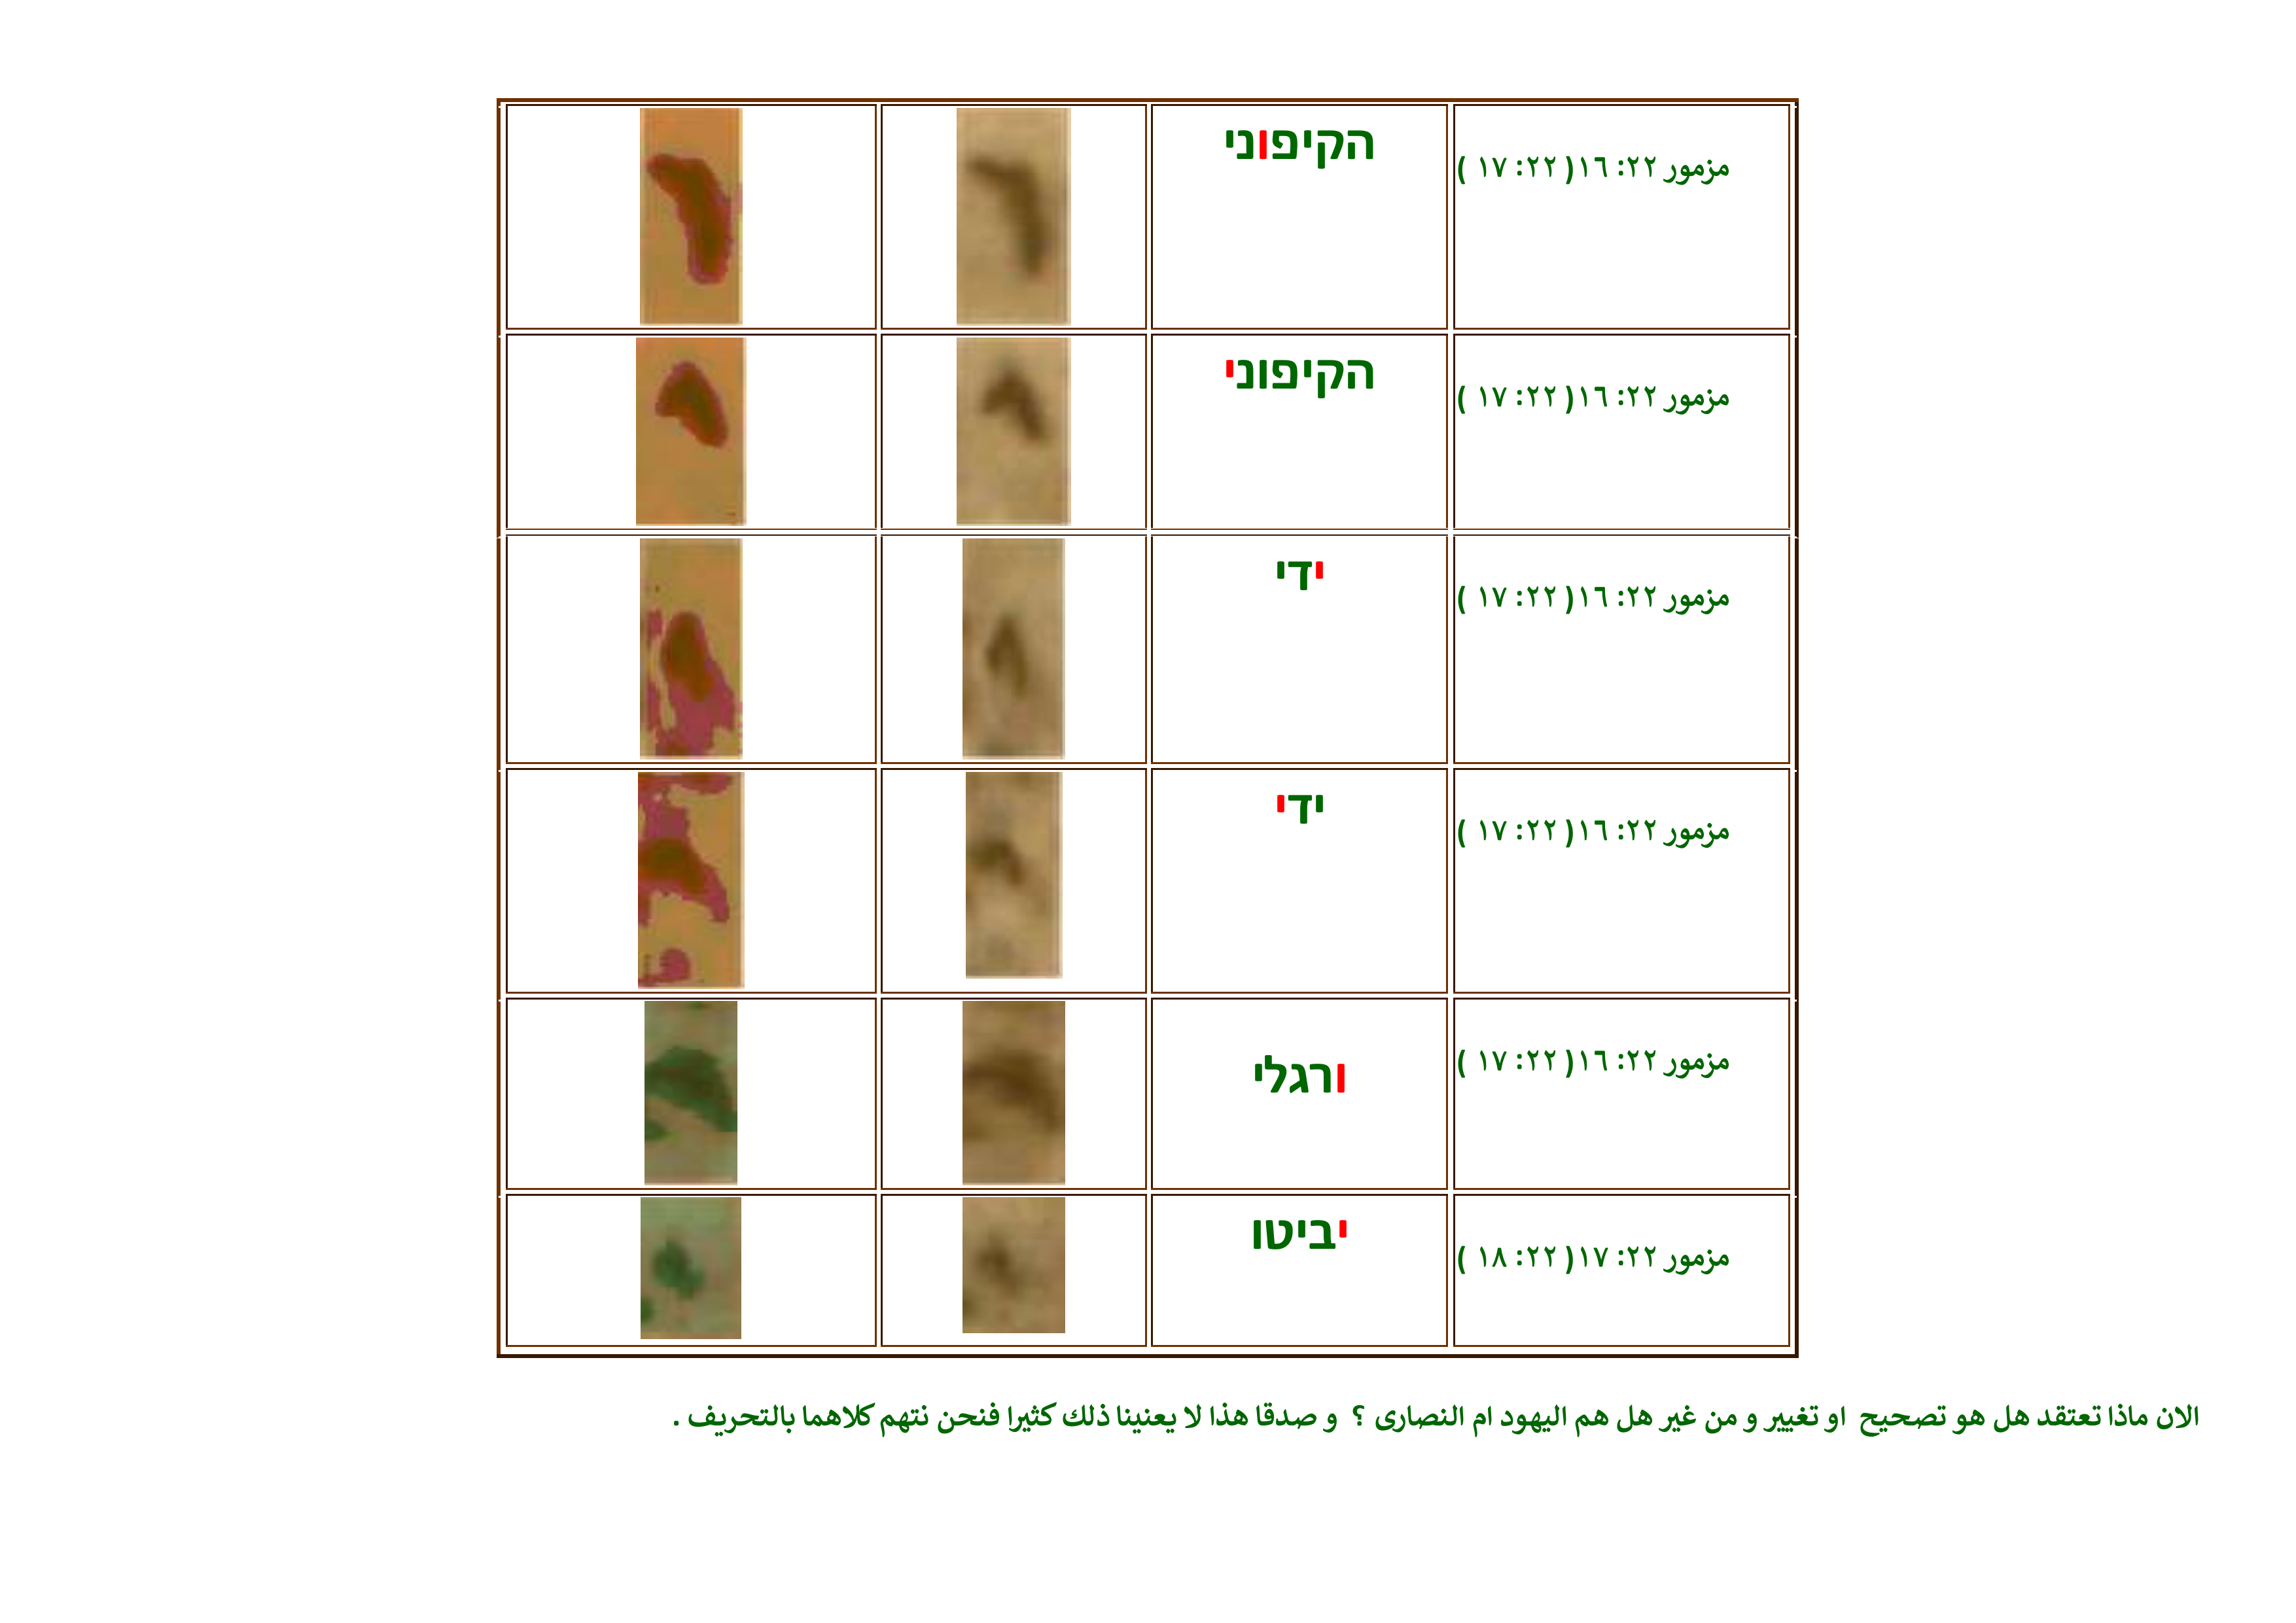 مزمور ٢٢: ١٦( ٢٢: ١٧ ) הקיפוני
مزمور ٢٢: ١٦( ٢٢: ١٧ ) הקיפוני
مزمور ٢٢: ١٦( ٢٢: ١٧ ) ידי
مزمور ٢٢: ١٦( ٢٢: ١٧ ) ידי
مزمور ٢٢: ١٦( ٢٢: ١٧ ) ורגלי
مزمور ٢٢: ١٧( ٢٢: ١٨ ) יביטו
الان ماذا تعتقد هل هو تصحيح او تغيير و من غير هل هم اليهود ام النصارى ؟ و صدقا هذا لا يعنينا ذلك كثيرا فنحن نتهم كلاهما بالتحريف .